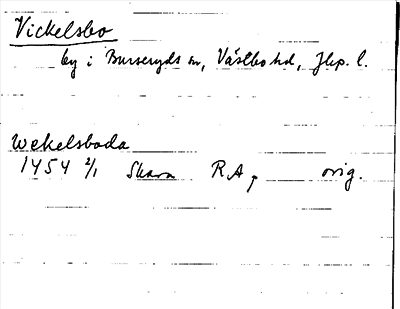 Vickelsbo
by i Burseryds sn, Västbo hd, Jkp. l.
Wekelsboda
1454 2/1 Skara R A, orig.